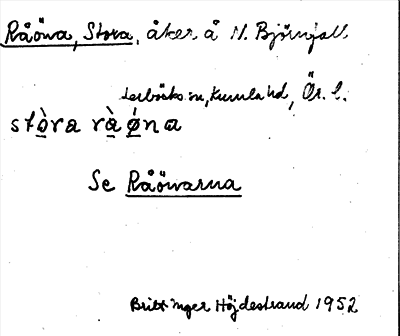 Råöna, Stora, åker å N. Björnfall
Lerbäcks sn, Kumla hd, Ör. l.
stòra rà ǿna
Se Råöarna
Britt Inger Höjdestrand 1952